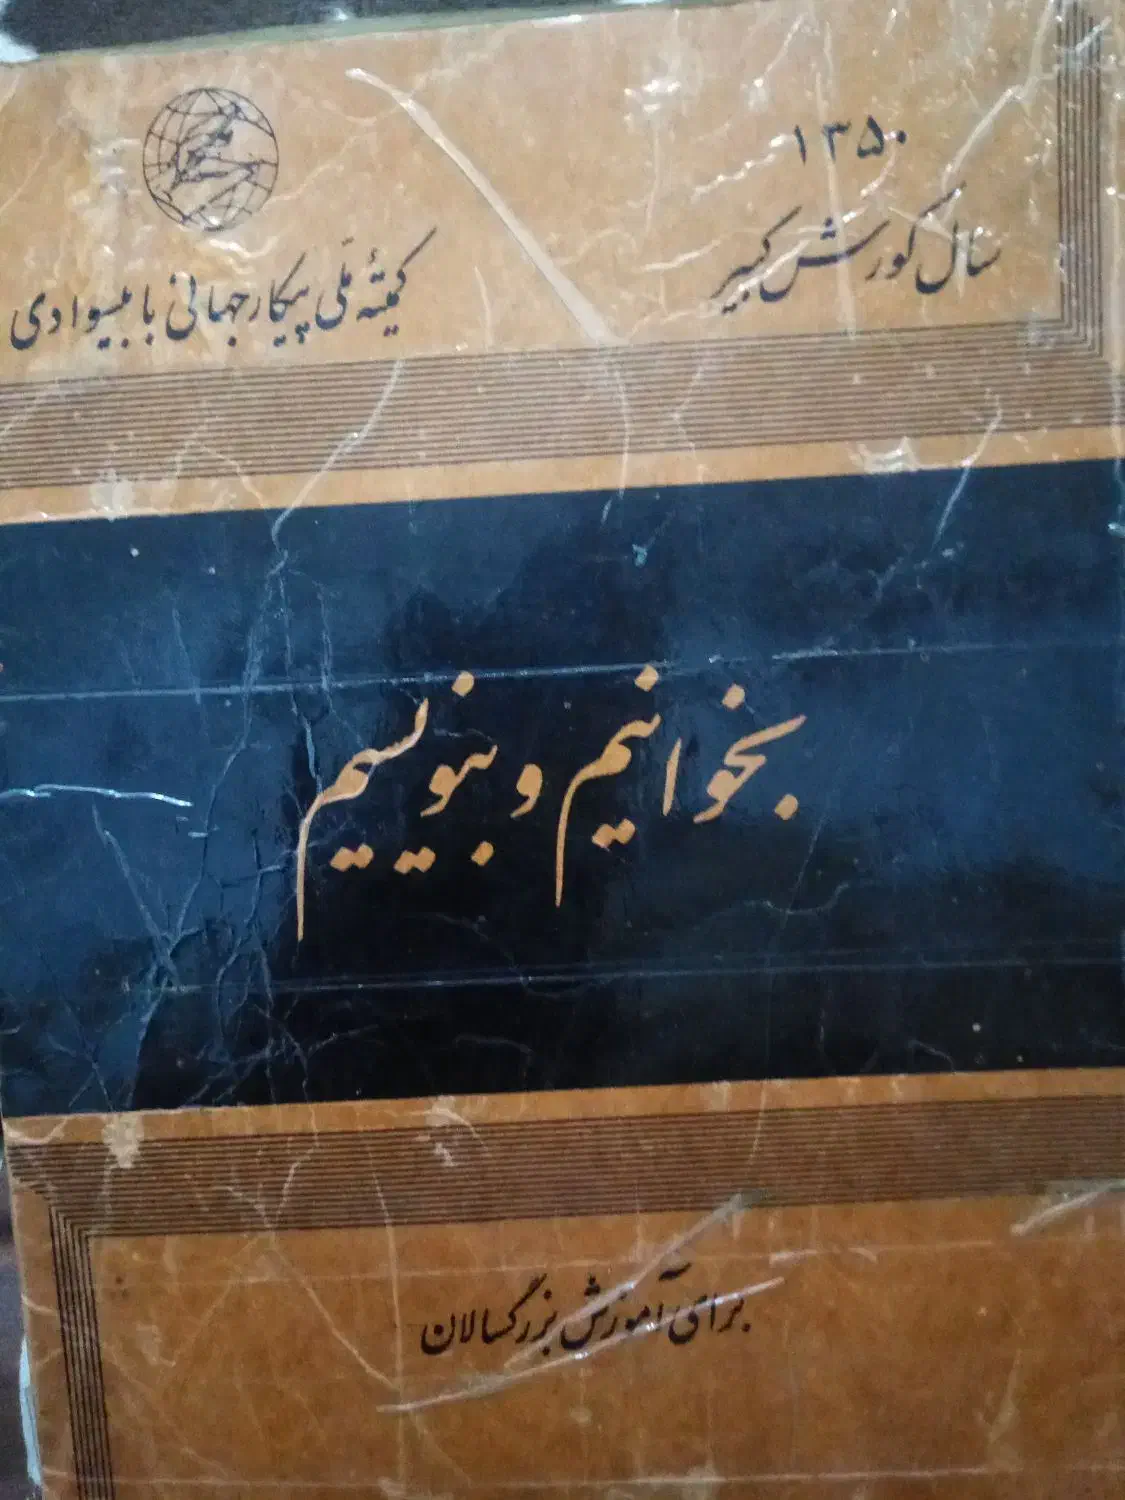 ۱۳۵۰
سال کورش کبیر
کمیتهٔ ملّی پیکار جهانی با بیسوادی
بخوانیم و بنویسیم
برای آموزش بزرگسالان